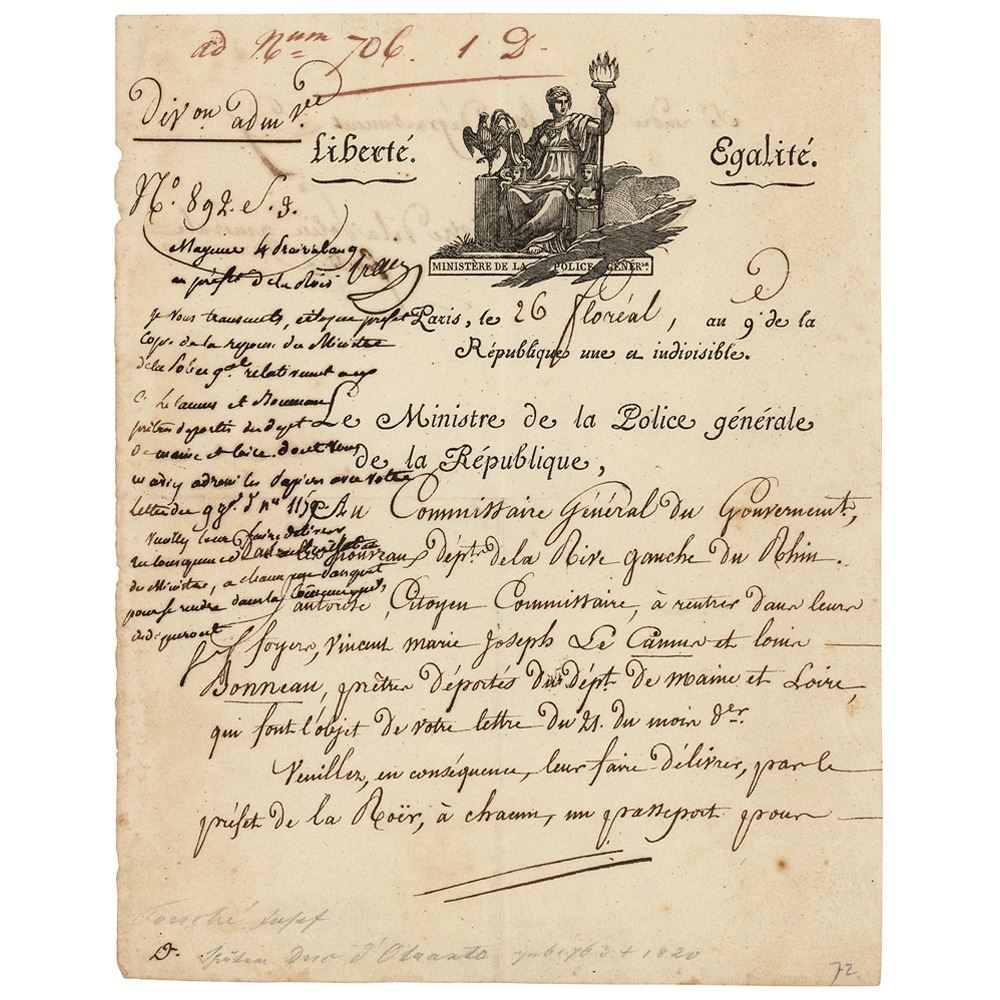 ad Num 706. 1 D.
Divon admvee
Liberté.
Egalité.
N.° 892. S. 3.
MINISTÈRE DE LA POLICE GÉNÉRle.
Mayence 4 prairial an 9
au préfet de la Roër
Paris, le 26 floréal, au 9e de la
République une et indivisible.
je Vous transmets, citoyen préfet
Copie de la réponse du Ministre
de la Police gale relativement aux
C. Le Camus et Bonneau
prêtres déportés du dept
De maine et loire. dont vous
m'adressé les papiers avec votre
lettre du 9
Veuillez leur faire délivrer
du Ministre, a chacun un passeport
pour se rendre dans la
Le Ministre de la Police générale
de la République,
Au Commissaire Général du Gouvernemt,
les nouveaux dépts de la Rive gauche du Rhin.
autorise, Citoyen Commissaire, à rentrer dans leurs
foyers, Vincent marie Joseph Le Camus et louis
Bonneau, prêtres déportés du dépt. de maine et Loire,
qui font l'objet de votre lettre du 21. du mois der.
Veuillez, en conséquence, leur faire délivrer, par le
préfet de la Roër, à chacun, un passeport pour
Fouché
D. später Duc d'Otranto geb 1763 + 1820
72.